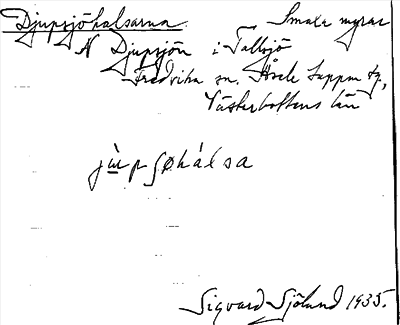 Djupsjöhalsarna Smala myrar
N Djupsjön i Tallsjö
Fredrika sn. Åsele lappm tg,
Västerbottens län
jùpʃøhálsa
Sigvard Sjölund 1935.